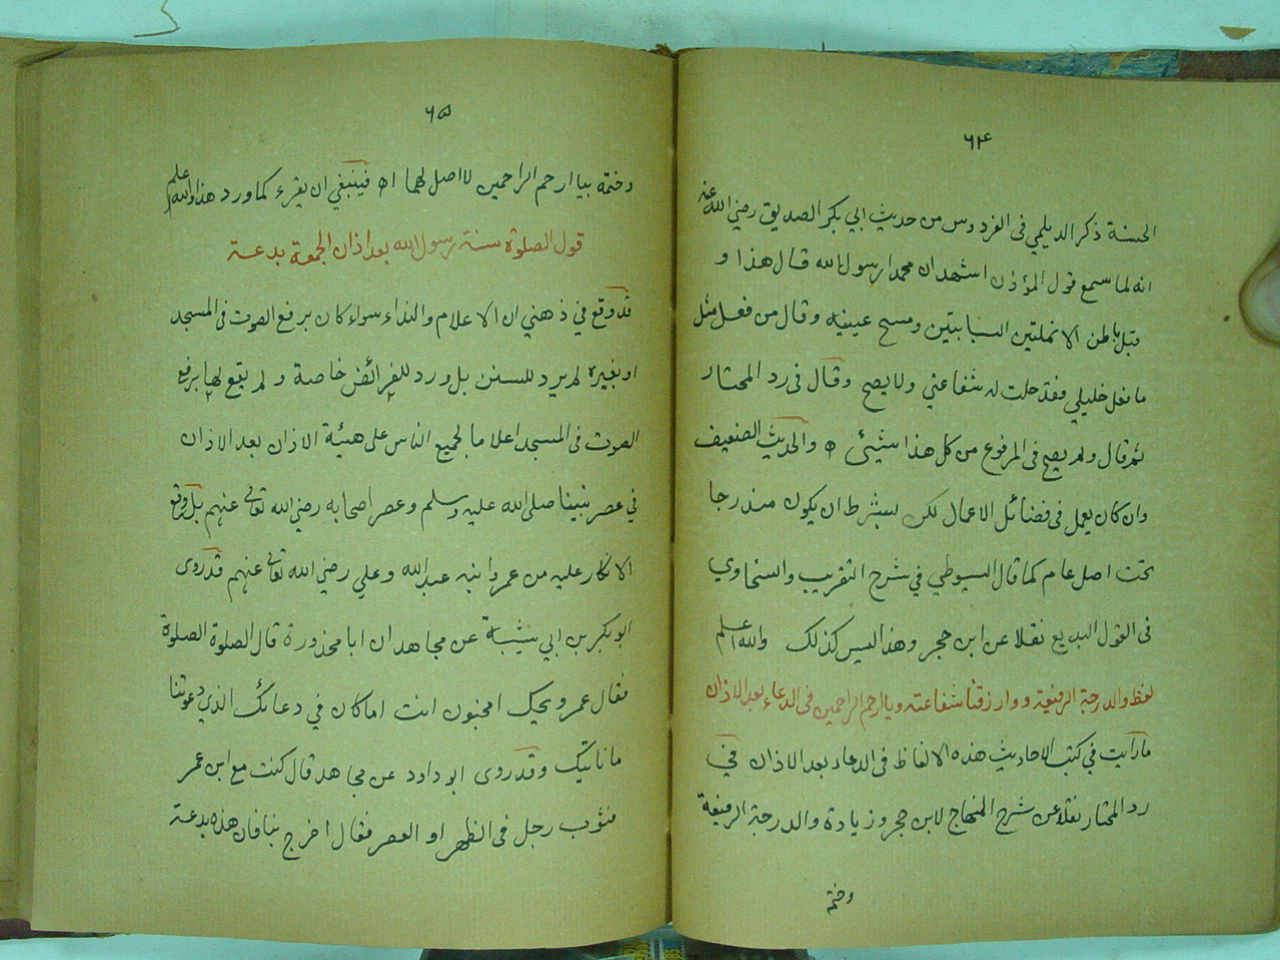 ٦٤
الحسنة ذكر الديلمي فى الفردوس من حديث ابي بكر الصديق رضي الله عنه
انه لما سمع قول المؤذن اشهد ان محمدا رسول الله قال هذا و
قبل باطن الانملتين السبابتين ومسح عينيه وقال من فعل مثل
ما فعل خليلي فقد حلت له شفاعتي ولا يصح وقال فى رد المحتار
ثم قال ولم يصح فى المرفوع من كل هذا شيئ اه والحديث الضعيف
وان كان يعمل فى فضائل الاعمال لكن بشرط ان يكون مندرجا
تحت اصل عام كما قال السيوطي في شرح التقريب والسخاوي
فى القول البديع نقلا عن ابن حجر وهذا ليس كذلك والله اعلم
لفظ والدرجة الرفيعة ووارزقنا شفاعته ويا ارحم الراحمين فى الدعاء بعد الاذان
ما رأيت في كتب الاحاديث هذه الالفاظ فى الدعاء بعد الاذان ففي
رد المحتار نقلا عن شرح المنهاج لابن حجر وزيادة والدرجة الرفيعة
وختم
٦٥
وختمه بيا ارحم الراحمين لا اصل لهما اه فينبغي ان يقرء كما ورد هذا والله اعلم
قول الصلوة سنة رسول الله بعد اذان الجمعة بدعة
قد وقع في ذهني ان الاعلام والنداء سواء كان برفع الصوت فى المسجد
او بغيره لم يرد للسنن بل ورد للفرائض خاصة و لم يقع لها برفع
الصوت فى المسجد اعلاما لجميع الناس على هيئة الاذان بعد الاذان
في عصر نبينا صلى الله عليه وسلم وعصر اصحابه رضي الله تعالى عنهم بل وقع
الانكار عليه من عمر وابنه عبد الله وعلي رضي الله تعالى عنهم قد روى
ابو بكر بن ابي شيبة عن مجاهد ان ابا محذورة قال الصلوة الصلوة
فقال عمر ويحك امجنون انت اما كان في دعائك الذي دعوتنا
ما ناتيك وقد روى ابو داود عن مجاهد قال كنت مع ابن عمر
فثوب رجل فى الظهر او العصر فقال اخرج بنا فان هذه بدعة